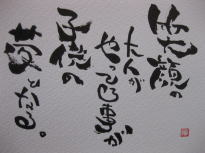 笑顔の
大人が
やってる事が、
子供の
夢となる。